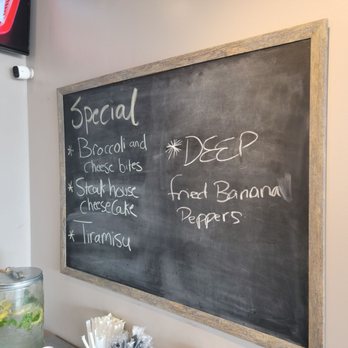 Special
* Broccoli and
cheese bites
* Steakhouse
cheesecake
* Tiramisu
* DEEP
fried Banana
Peppers